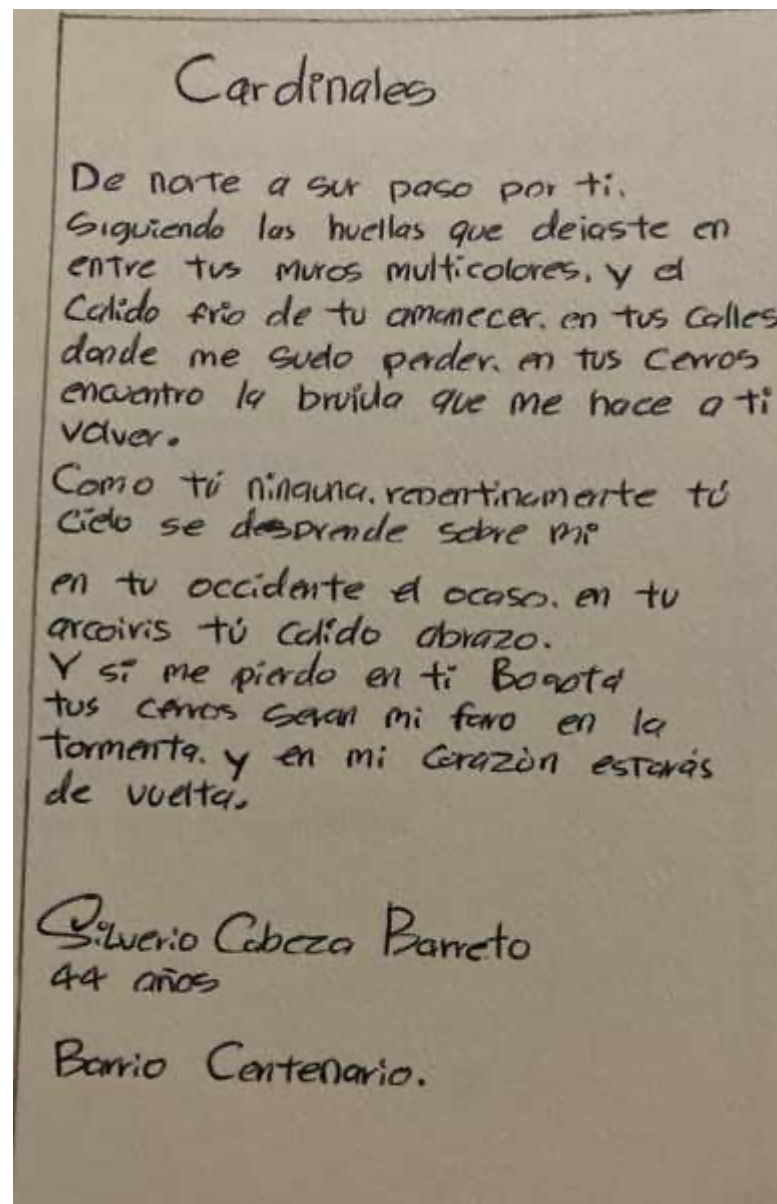 Cardinales
De norte a sur paso por ti.
Siguiendo las huellas que dejaste en
entre tus muros multicolores. y el
Calido frio de tu amanecer. en tus calles
donde me suelo perder. en tus cerros
encuentro la brujula que me hace a ti
volver.
Como tú ninguna. repentinamente tú
cielo se desprende sobre mi
en tu occidente el ocaso. en tu
arcoiris tú calido abrazo.
Y si me pierdo en ti Bogotá
tus cerros seran mi faro en la
tormenta. y en mi Corazòn estarás
de vuelta.
Silverio Cabeza Barreto
44 años
Barrio Centenario.